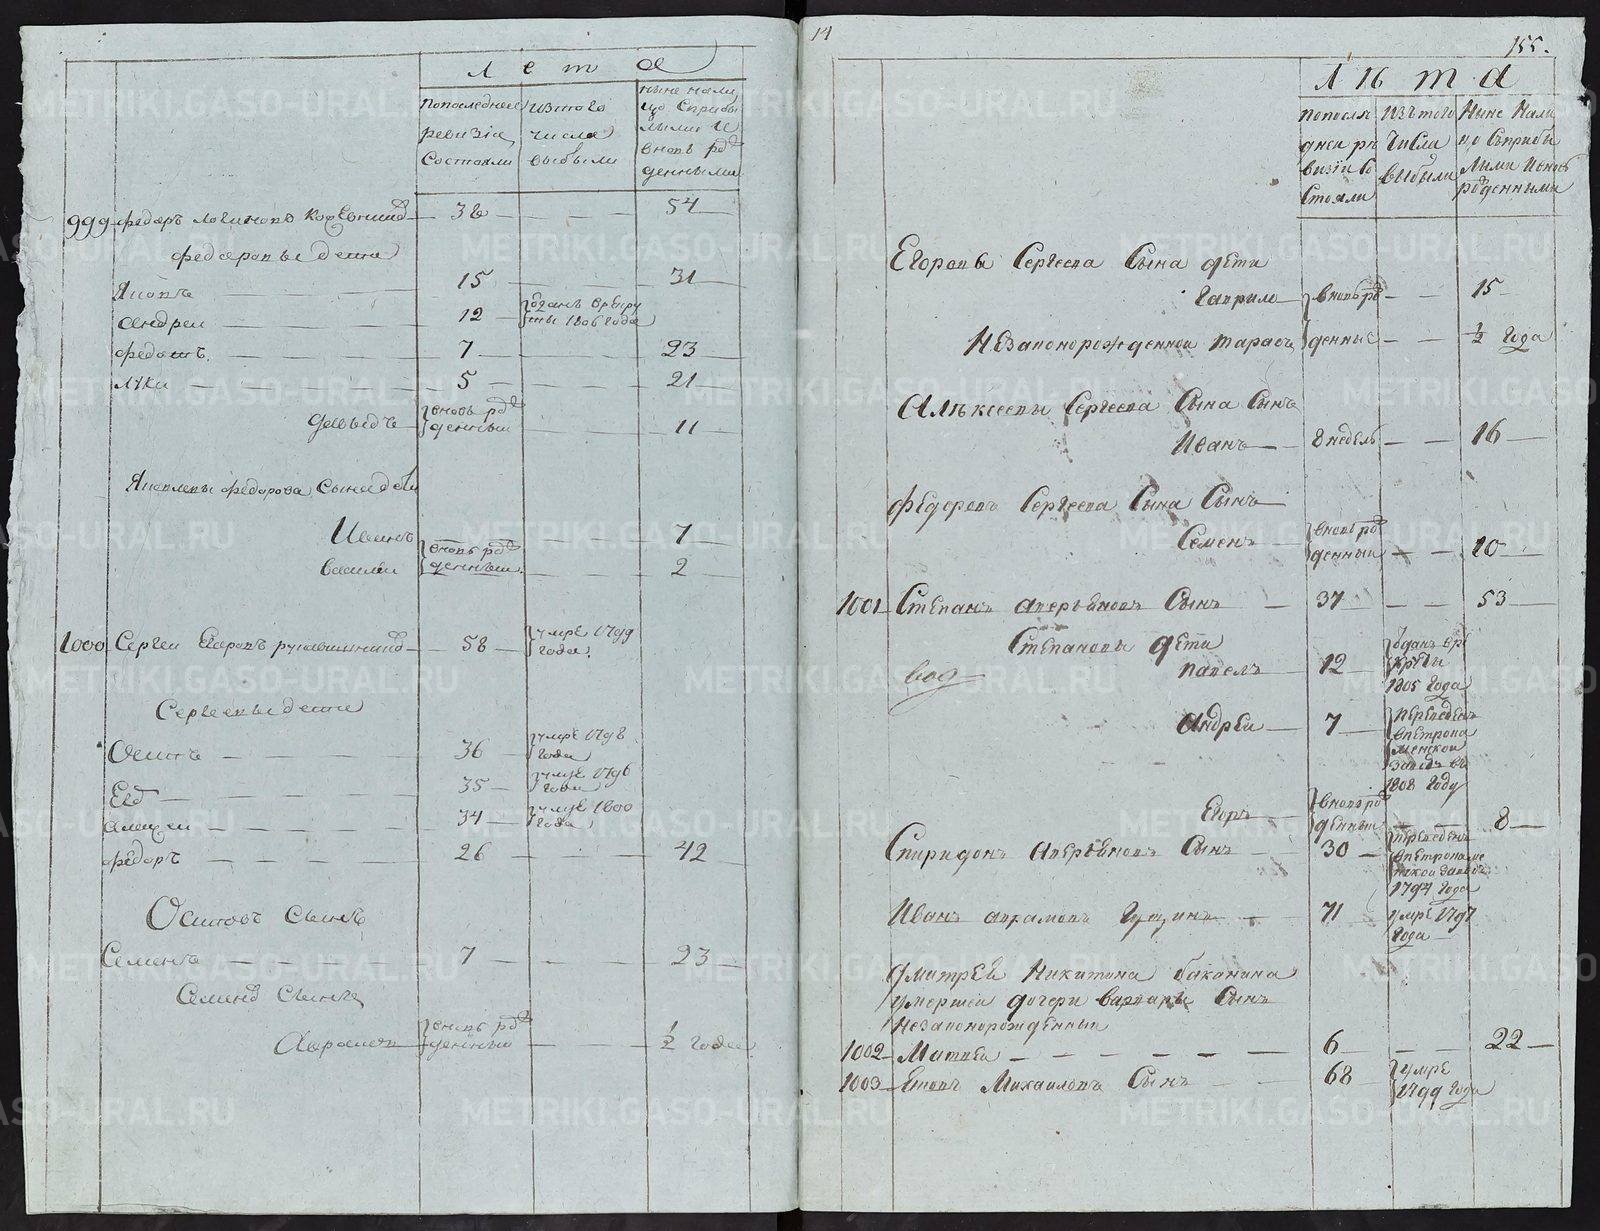 Лета
попоследнее изтого ныне нали
ревизіе числа цо Сприбы
Состояли выбыли лыми И
вновь рож
денными
999 федоръ логиновъ 38 54
федоровы дети
Яковъ 15 31
андреи 12 отданъ врекру
ты 1806 года
федотъ 7 23
луки 5 21
давыдъ вновь рож
денныи 11
Яковлевы федорова сына дети
Иванъ вновь рож 7
василеи денныи 2
1000 Сергеи Егоровъ рукавишник 58 умре 1799
года
Сергеевы дети
Осипъ 36 умре 1798
года
Егор 35 умре 1796
года
алексеи 34 умре 1800
года
федоръ 26 42
Осиповъ сынъ
Семенъ 7 23
Семенов сынъ
Аврамеи вновь рож
денныи 1/2 года
14
155.
Лѣта
попослѣ Изътого Ныне Нали
дней ре Числа цо Съприбы
визіи со выбыли Лыми Ивновь
стояли рожденными
Егоровы Сергеева Сына дети
Гаврило вновь рож 15
Незаконорожденной тарасъ денные 1/2 года
Алѣксеевы Сергеева Сына Сынъ
Иванъ 8 недель 16
Федоровъ Сергеева Сына Сынъ
Семенъ вновь рож
денныи 10
1001 Степанъ аверьяновъ Сынъ 37 53
Степановы дети
павелъ 12 отданъ вре
круты
1805 года
Андреи 7 переведенъ
впетрока
менской
заводъ въ
1808 году
Егоръ вновь рож
денныи 8
Спиридонъ Аверьяновъ Сынъ 30 переведенъ
впетрокаме
нской заводъ
1797 года
Иванъ аврамовъ Гущинъ 71 умре 1797
года
дмитрея Никитина баконина
умершеи дочери варвары Сынъ
Незаконорожденныи
1002 Матвеи 6 22
1003 Михаиловъ Сынъ 68 умре
1799 года